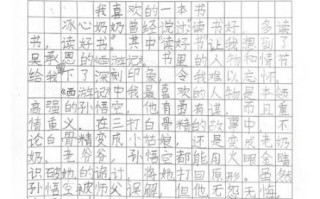 我喜欢的一本书
冰心奶奶曾经说过“读书好，多读
书，读好书。”其中读好书让我想到
吴承恩的《西游记》。书里的人物和情节
给我留下了深刻印象，令我难以忘怀。
《西游记》中我最喜欢的人物是本领
高强的孙悟空，他有勇有谋，而且重
情重义。在三打白骨精的故事中，不
论白骨精变成小姑娘，还是变成老奶
奶、老爷爷，孙悟空都能用火眼金睛
识破她的诡计，将她打回原形。虽然
孙悟空被师父误解，但他无怨无悔，